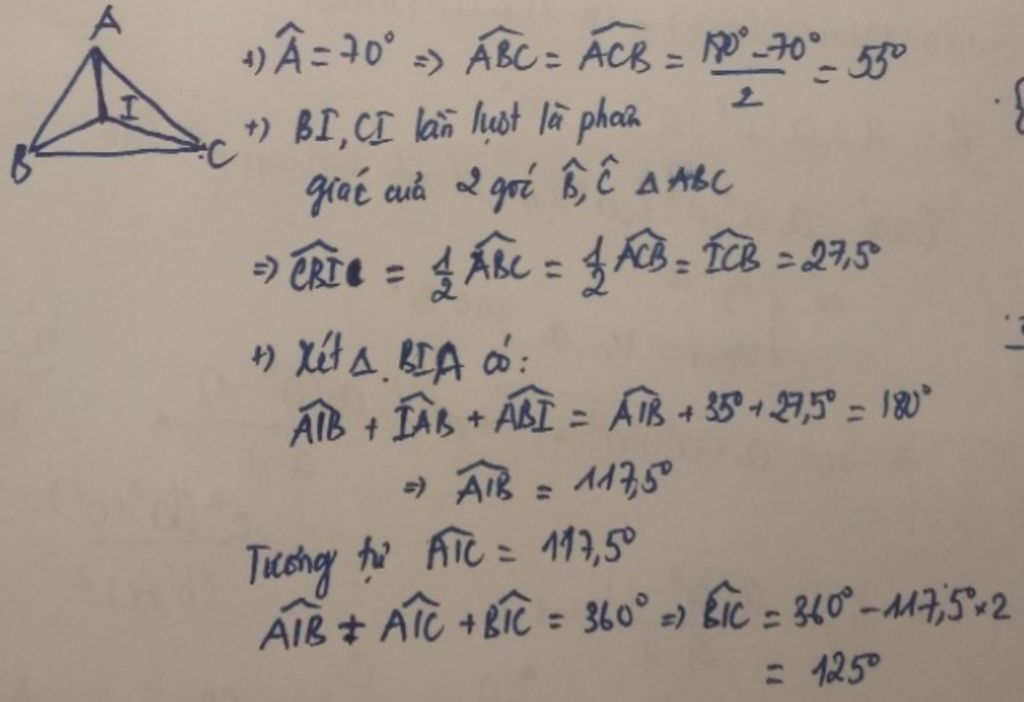 A
I
B
C
+) Â = 70° => \widehat{ABC} = \widehat{ACB} = \frac{180° - 70°}{2} = 55°
+) BI, CI lần lượt là phân
giác của 2 góc B̂, Ĉ Δ ABC
=> \widehat{CBI} = \frac{1}{2} \widehat{ABC} = \frac{1}{2} \widehat{ACB} = \widehat{ICB} = 27,5°
+) Xét Δ. BIA có:
\widehat{AIB} + \widehat{IAB} + \widehat{ABI} = \widehat{AIB} + 35° + 27,5° = 180°
=> \widehat{AIB} = 117,5°
Tương tự \widehat{AIC} = 117,5°
\widehat{AIB} + \widehat{AIC} + \widehat{BIC} = 360° => \widehat{BIC} = 360° - 117,5° × 2
= 125°